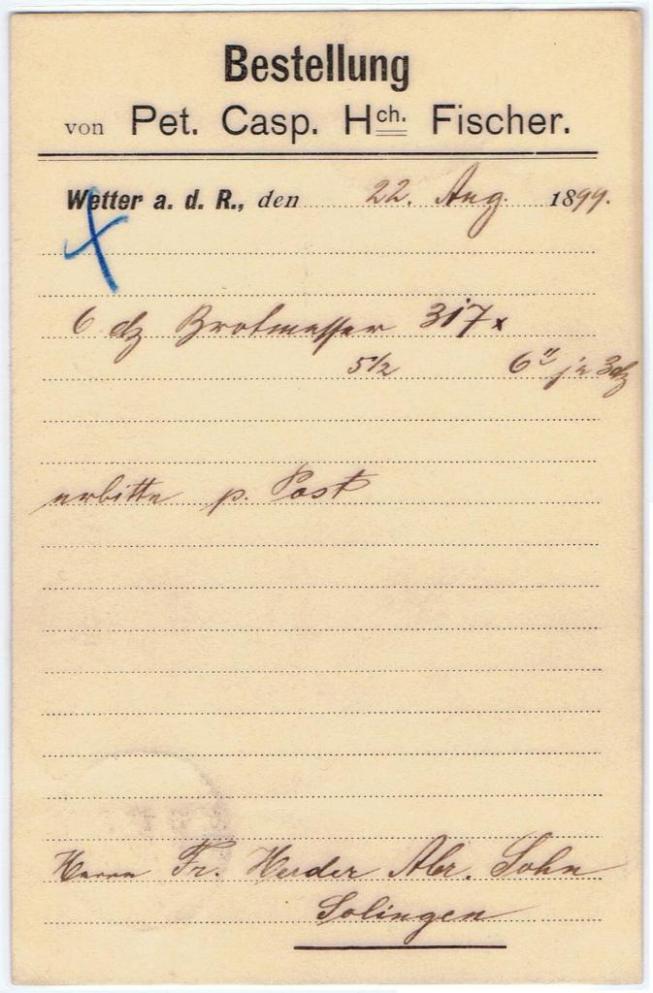 Bestellung
von Pet. Casp. Hch. Fischer.
Wetter a. d. R., den 22. Aug. 1899.
6 dz Brotmesser 317x
5 1/2 6" je 3 dz
erbitte p. Post
Herrn Fr. Herder Abr. Sohn
Solingen